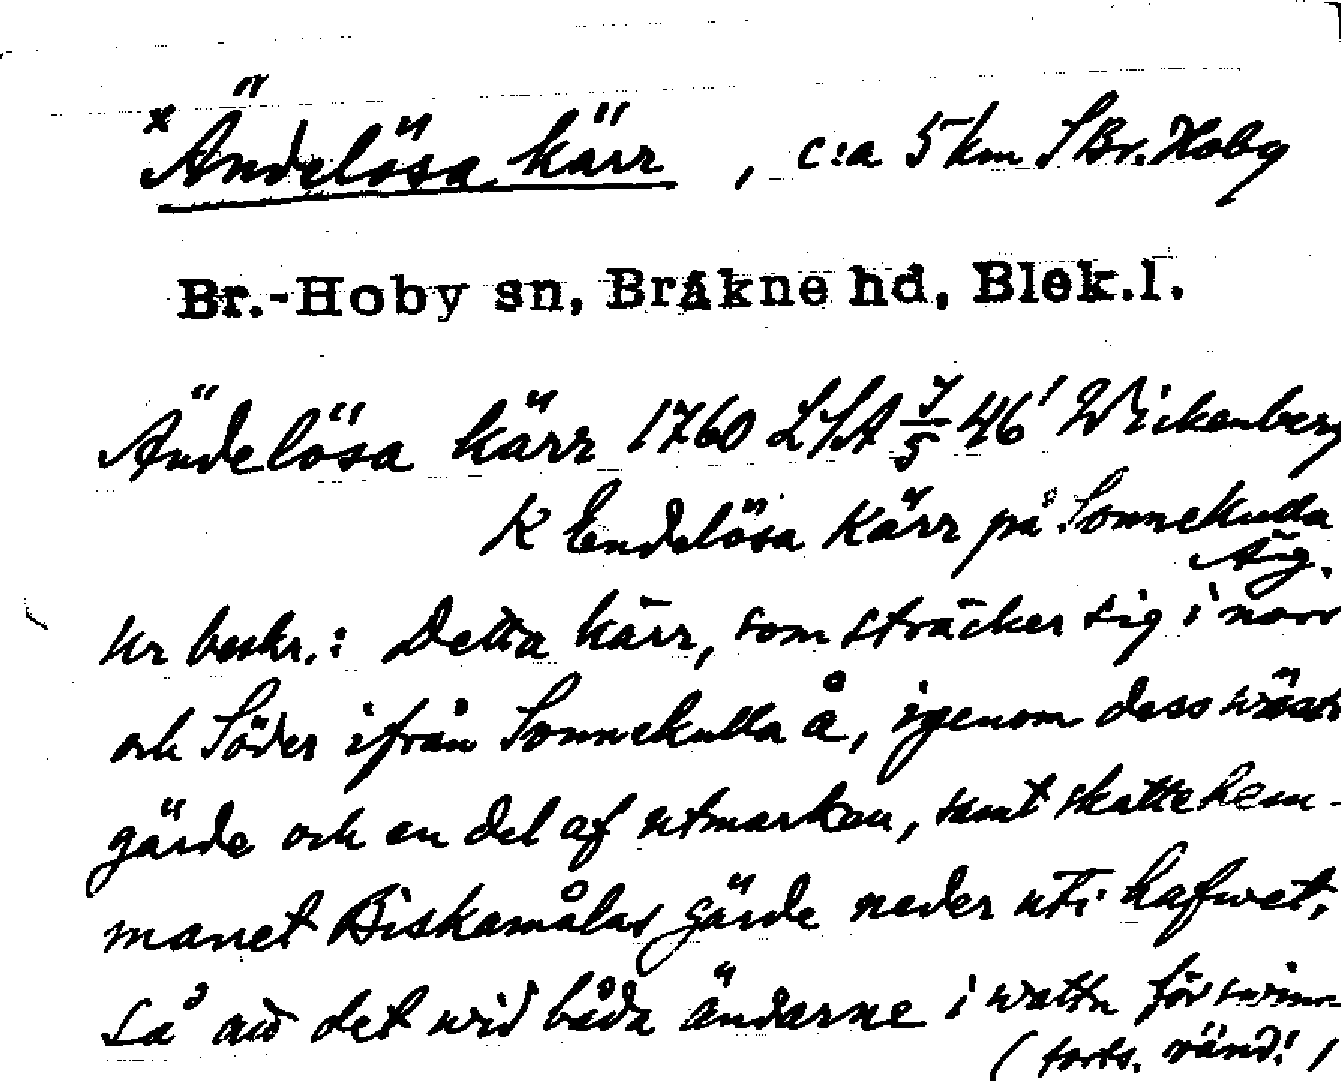 x Ändelösa kärr, c:a 5 km S Br. Hoby
Br.-Hoby sn, Bräkne hd, Blek.l.
Ändelösa kärr 1760 LSA 7/5 46' Wickenberg
K Endelösa Kärr på Sonnekulla
Äg.
Ur beskr.: Detta kärr, som sträcker sig i norr
och Söder ifrån Sonnekulla å, igenom dess
gärde och en del af utmarken, samt skattehem-
manet Biskamålas gärde neder uti hafwet,
så att det wid båda ändarne i wattn försvinn-
(forts. vänd!)